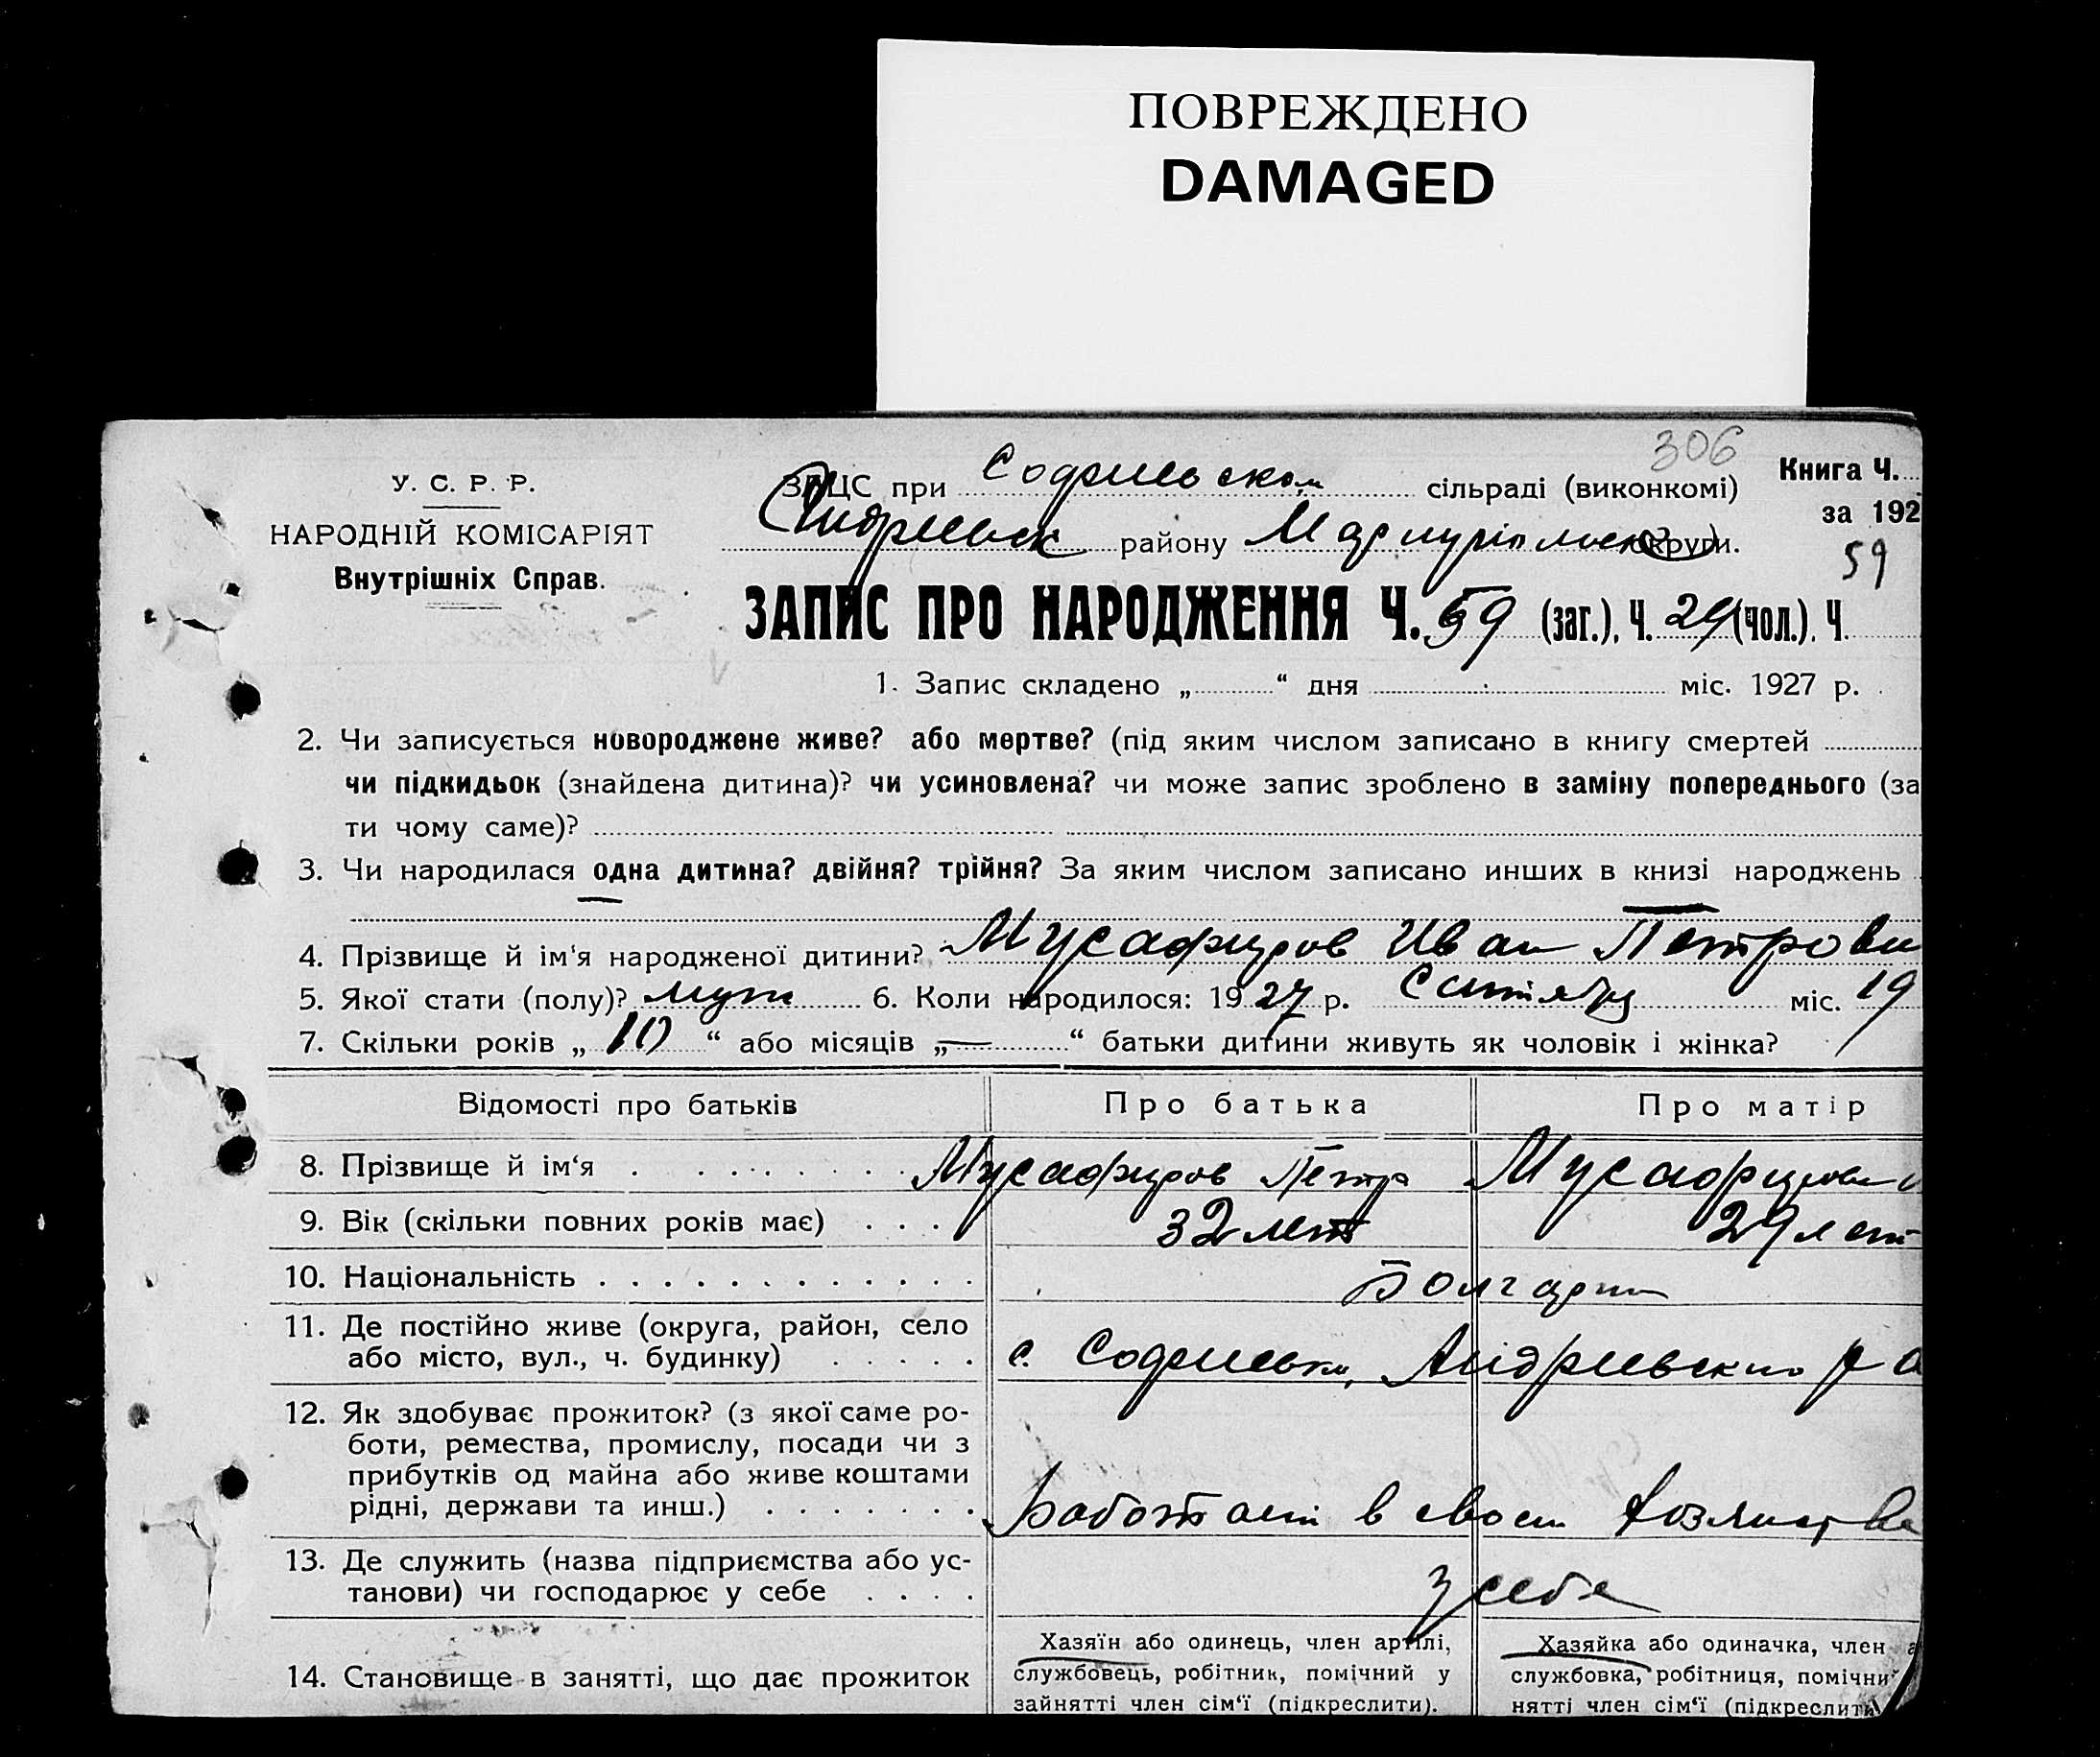 ПОВРЕЖДЕНО
DAMAGED
306
У. С. Р. Р.
НАРОДНІЙ КОМІСАРІЯТ
Внутрішніх Справ.
ЗАЦС при сільраді (виконкомі)
району округи.
Книга Ч.
за 192
59
ЗАПИС ПРО НАРОДЖЕННЯ Ч. 59 (заг.), Ч. 29 (чол.). Ч.
1. Запис складено „ “ дня міс. 1927 р.
2. Чи записується новороджене живе? або мертве? (під яким числом записано в книгу смертей
чи підкидьок (знайдена дитина)? чи усиновлена? чи може запис зроблено в заміну попереднього (за
ти чому саме)?
3. Чи народилася одна дитина? двійня? трійня? За яким числом записано инших в книзі народжень
4. Прізвище й ім‘я народженої дитини? Мусафиров Иван Петрови
5. Якої стати (полу)? муж 6. Коли народилося: 1927 р. Сентября міс. 19
7. Скільки років „ 10 “ або місяців „ — “ батьки дитини живуть як чоловік і жінка?
Відомості про батьків Про батька Про матір
8. Прізвище й ім‘я Мусафиров Петр Мусафирова
9. Вік (скільки повних років має) 32 лет 29 лет
10. Національність Болгары
11. Де постійно живе (округа, район, село
або місто, вул., ч. будинку)
с. Андриевского ра
12. Як здобуває прожиток? (з якої саме ро-
боти, ремества, промислу, посади чи з
прибутків од майна або живе коштами
рідні, держави та инш.)
Работает в своем хозяйстве
13. Де служить (назва підприємства або ус-
танови) чи господарює у себе
у себя
14. Становище в занятті, що дає прожиток
Хазяїн або одинець, член артілі,
службовець, робітник, помічний у
зайнятті член сім‘ї (підкреслити).
Хазяйка або одиначка, член а
службовка, робітниця, помічни
нятті член сім‘ї (підкреслити